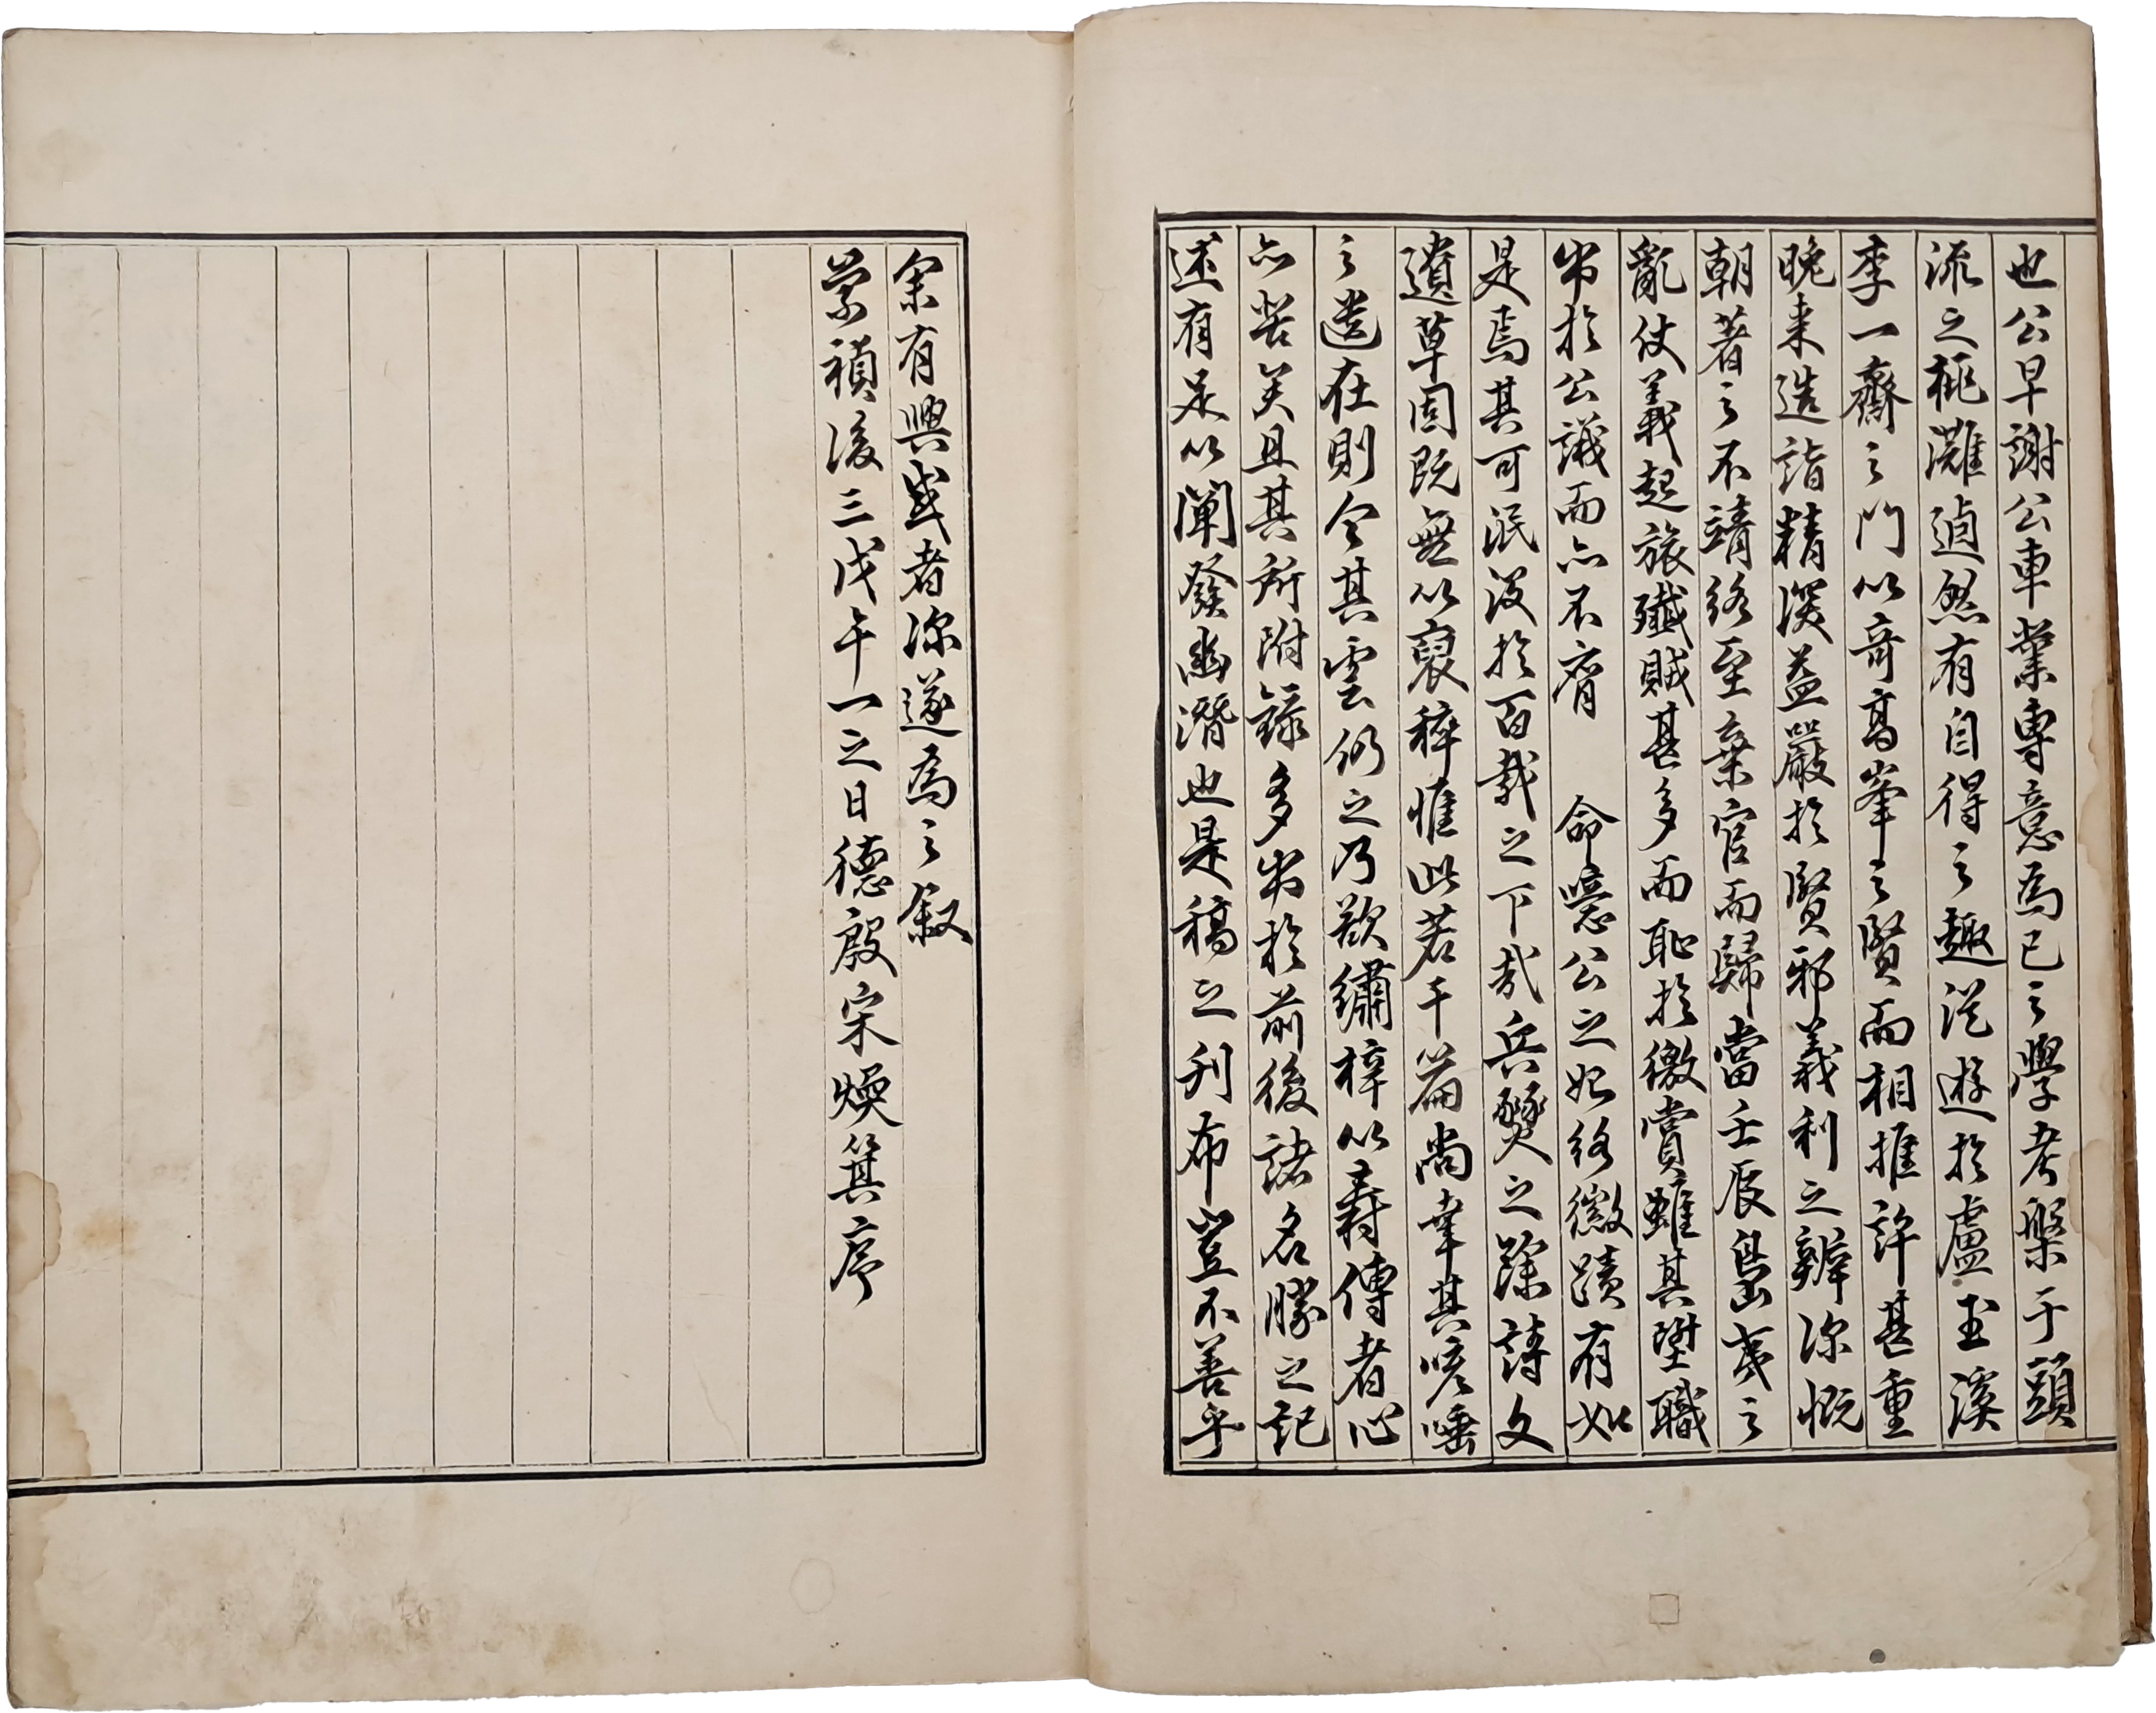 也公早謝公車業專意爲己之學考槃于頭
流之桃灘逌然有自得之趣從遊於盧玉溪
李一齋之門以奇高峯之賢而相推許甚重
晚来造詣精深益嚴於賢邪義利之辨深慨
朝著之不靖終至棄官而歸當壬辰島夷之
亂仗義起旅殲賊甚多而恥於徼賞雖其墍職
出於公議而亦不膺 命噫公之始終徽蹟有如
是焉其可泯沒於百載之下哉兵燹之餘詩文
遺草固既無以裒稡惟此若干篇尚幸其咳唾
之遺在則今其雲仍之乃欲繡梓以壽傳者心
亦苦矣且其所附錄多出於前後諸名勝之記
述有足以闡發幽潛也是稿之刊布豈不善乎
余有興感者深遂爲之叙
崇禎後三戊午一之日德殷宋煥箕序